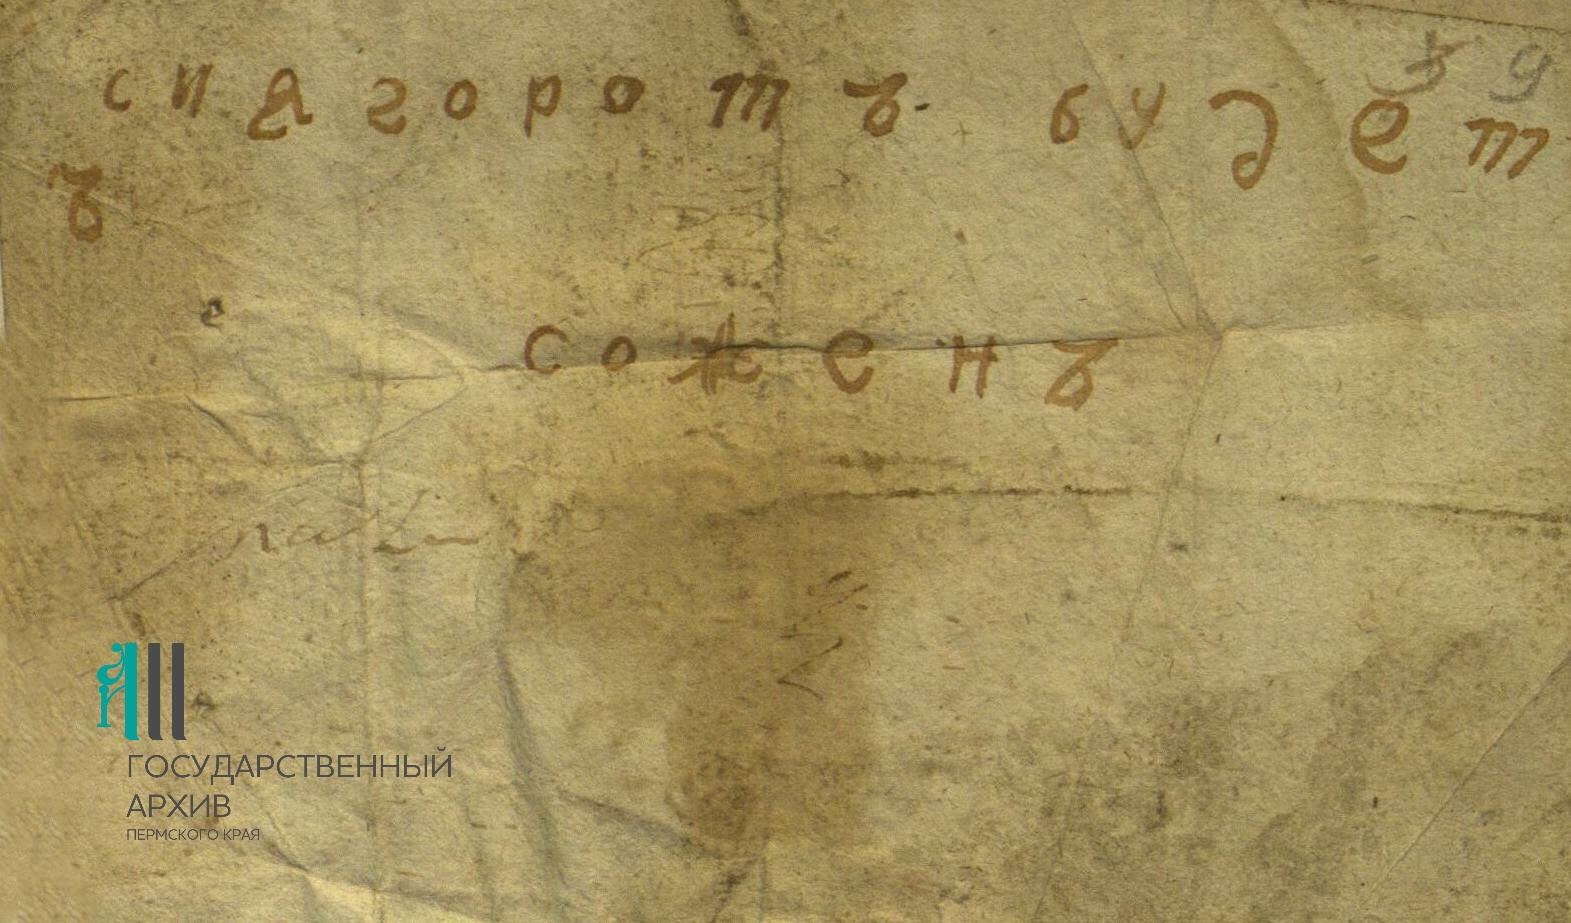 сиагоротъ. будет
ъ
соженъ
ГОСУДАРСТВЕННЫЙ
АРХИВ
ПЕРМСКОГО КРАЯ